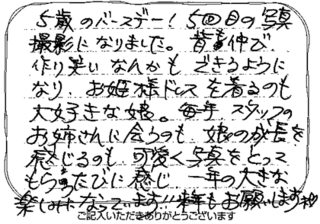 5歳のバースデー！5回目の写真
撮影になりました。背も伸び、
作り笑いなんかも できるように
なり お姫様ドレスを着るのも
大好きな娘。毎年 スタッフの
お姉さんに会うのも 娘の成長を
感じるのも 可愛く写真をとって
もらうたびに感じ 一年の大きな
楽しみになっています!!来年もお願いします
ご記入いただきありがとうございます